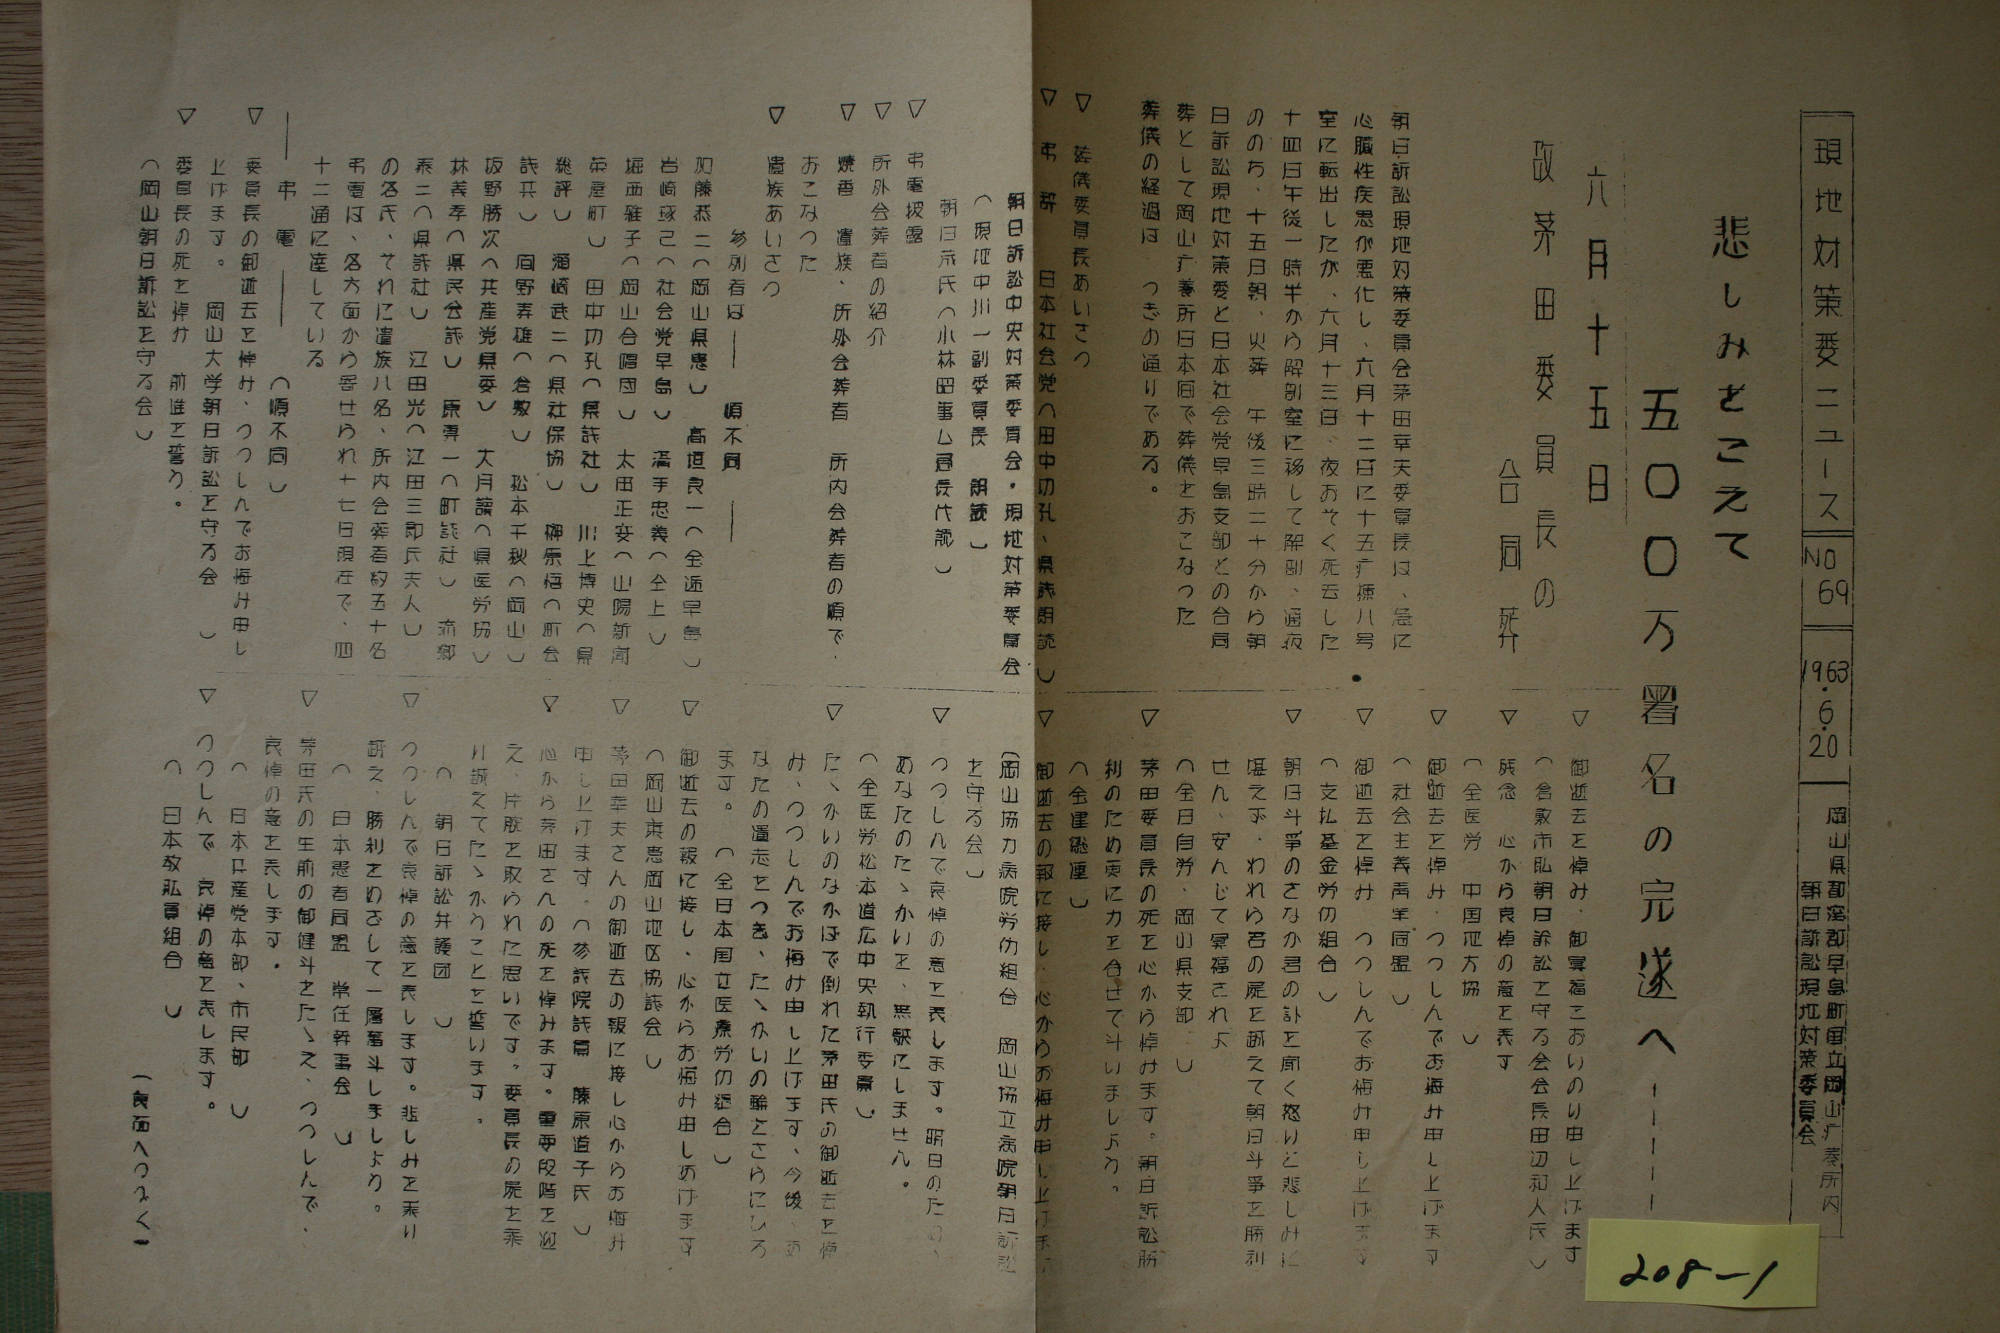 現地対策委ニュース
NO 69
1963・6・20
岡山県都窪郡早島町国立岡山疒養所内
朝日訴訟現地対策委員会
悲しみをこえて
五〇〇万署名の完遂へ－－－－
六月十五日
故茅田委員長の
合同葬
朝日訴訟現地対策委員会茅田幸夫委員長は、急に
心臓性疾患が悪化し、六月十二日に十五疒棟八号
室に転出したが、六月十三日、夜おそく死去した
十四日午後一時半から解剖室に移して解剖、通夜
ののち、十五日朝、火葬 午後三時二十分から朝
日訴訟現地対策委と日本社会党早島支部との合同
葬として岡山疒養所日本同で葬儀をおこなった
葬儀の経過は つぎの通りである。
▽ 葬儀委員長あいさつ
▽ 弔 辞 日本社会党（田中功孔、県議朗読）
朝日訴訟中央対策委員会・現地対策委員会
（現地中川一副委員長 朗読）
朝日茂氏（小林田事ム局長代読）
▽ 弔電披露
▽ 所外会葬者の紹介
▽ 焼香 遺族、所外会葬者 所内会葬者の順で、
おこなった
▽ 遺族あいさつ
参列者は―― 順不同 ――
加藤恭二（岡山県患） 高垣良一（全逓早島）
岩崎琢己（社会党早島） 溝手忠義（仝上）
堀西雅子（岡山合唱団） 太田正安（山陽新聞
茶屋町） 田中功孔（県議社） 川上博史（県
総評） 湧崎武二（県社保協） 榊原悟（町会
議共） 同野寿雄（倉敷） 松本千秋（岡山）
坂野勝次（共産党県委） 大月讀（県医労協）
林義孝（県民会議） 原専一（町議社） 流郷
泰二（県評社） 江田光（江田三郎氏夫人）
の各氏、それに遺族八名、所内会葬者約五十名
弔電は、各方面から寄せられ十七日現在で、四
十二通に達している
―― 弔 電 ―― （順不同）
▽ 委員長の御逝去を悼み、つつしんでお悔み申し
上げます。 岡山大学朝日訴訟を守る会 ）
▽ 委員長の死を悼み 前進を誓う。
（岡山朝日訴訟を守る会）
▽ 御逝去を悼み、御冥福をおいのり申し上げます
（倉敷市私朝日訴訟を守る会会長田辺和人氏）
▽ 残念 心から哀悼の意を表す
（全医労 中国地方協 ）
▽ 御逝去を悼み、つつしんでお悔み申し上げます
（社会主義青年同盟 ）
▽ 御逝去を悼み つつしんでお悔み申し上げます
（支払基金労仂組合）
▽ 朝日斗争のさなか君の訃を聞く怒りと悲しみに
堪えず、われら君の屍を越えて朝日斗争を勝利
せん、安んじて冥福されよ
（全日自労、岡山県支部 ）
▽ 茅田委員長の死を心から悼みます。朝日訴訟勝
利のため更に力を合せて斗いましよう。
（全建総連）
▽ 御逝去の報に接し、心からお悔み申し上げます。
（岡山協力病院労仂組合 岡山協立病院朝日訴訟
を守る会）
▽ つつしんで哀悼の意を表します。明日のため、
あなたのたゝかいを、無駄にしません。
（全医労松本道広中央執行委員）
▽ たゝかいのなかばで倒れた茅田氏の御逝去を悼
み、つつしんでお悔み申し上げます、今後、あ
なたの遺志をつぎ、たゝかいの輪をさらにひろ
ます。 （全日本国立医療労仂組合 ）
▽ 御逝去の報に接し、心からお悔み申しあげます
（岡山東患岡山地区協議会 ）
▽ 茅田幸夫さんの御逝去の報に接し心からお悔み
申し上げます。（参議院議員 藤原道子氏 ）
▽ 心から茅田さんの死を悼みます。重要段階を迎
え、片腕を取られた思いです。委員長の屍を乗
り越えてたゝかうことを誓います。
（ 朝日訴訟弁護団 ）
▽ つつしんで哀悼の意を表します。悲しみを乗り
越え、勝利をめざして一層奮斗しましよう。
（ 日本患者同盟 常任幹事会 ）
▽ 茅田氏の生前の御健斗をたゝえ、つつしんで、
哀悼の意を表します。
（ 日本共産党本部、市民部 ）
▽ つつしんで 哀悼の意を表します。
（ 日本教職員組合 ）
（裏面へつゞく）
208-1